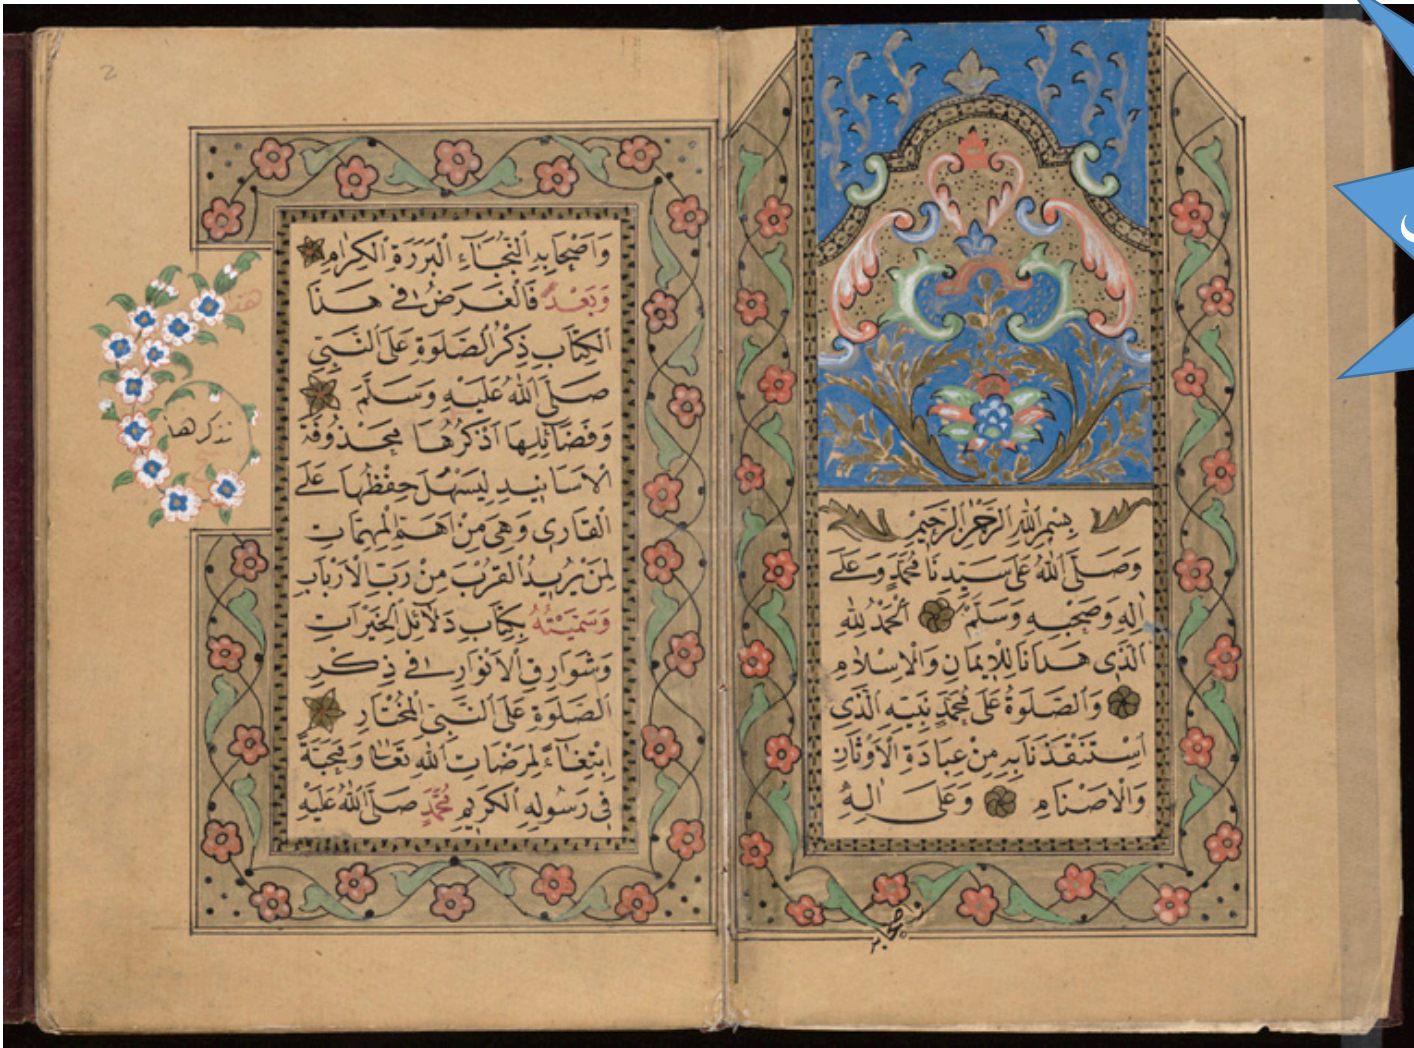 بِسْمِ اللهِ الرَّحْمٰنِ الرَّحِيْمِ
وَصَلَّى اللهُ عَلَى سَيِّدِنَا مُحَمَّدٍ وَعَلَى
اٰلِهِ وَصَحْبِهِ وَسَلَّمَ اَلْحَمْدُ لِلّٰهِ
الَّذِى هَدَانَا لِلْاِيمَانِ وَالْاِسْلَامِ
وَالصَّلٰوةُ عَلَى مُحَمَّدٍ نَبِيِّهِ الَّذِى
اسْتَنْقَذَنَا بِهِ مِنْ عِبَادَةِ الْاَوْثَانِ
وَالْاَصْنَامِ وَعَلَى اٰلِهِ
وَاَصْحَابِهِ النُّجَبَاۤءِ الْبَرَرَةِ الْكِرَامِ
وَبَعْدُ فَالْغَرَضُ فِى هٰذَا
الْكِتَابِ ذِكْرُ الصَّلٰوةِ عَلَى النَّبِىِّ
صَلَّى اللهُ عَلَيْهِ وَسَلَّمَ
وَفَضَاۤئِلِهَا اَذْكُرُهَا مَحْذُوفَةَ
الْاَسَانِيدِ لِيَسْهُلَ حِفْظُهَا عَلَى
الْقَارِى وَهِىَ مِنْ اَهَمِّ الْمُهِمَّاتِ
لِمَنْ يُرِيدُ الْقُرْبَ مِنْ رَبِّ الْاَرْبَابِ
وَسَمَّيْتُهُ بِكِتَابِ دَلَاۤئِلِ الْخَيْرَاتِ
وَشَوَارِقِ الْاَنْوَارِ فِى ذِكْرِ
الصَّلٰوةِ عَلَى النَّبِىِّ الْمُخْتَارِ
ابْتِغَاۤءً لِمَرْضَاتِ اللهِ تَعَالٰى وَمَحَبَّةً
فِى رَسُولِهِ الْكَرِيمِ مُحَمَّدٍ صَلَّى اللهُ عَلَيْهِ
2